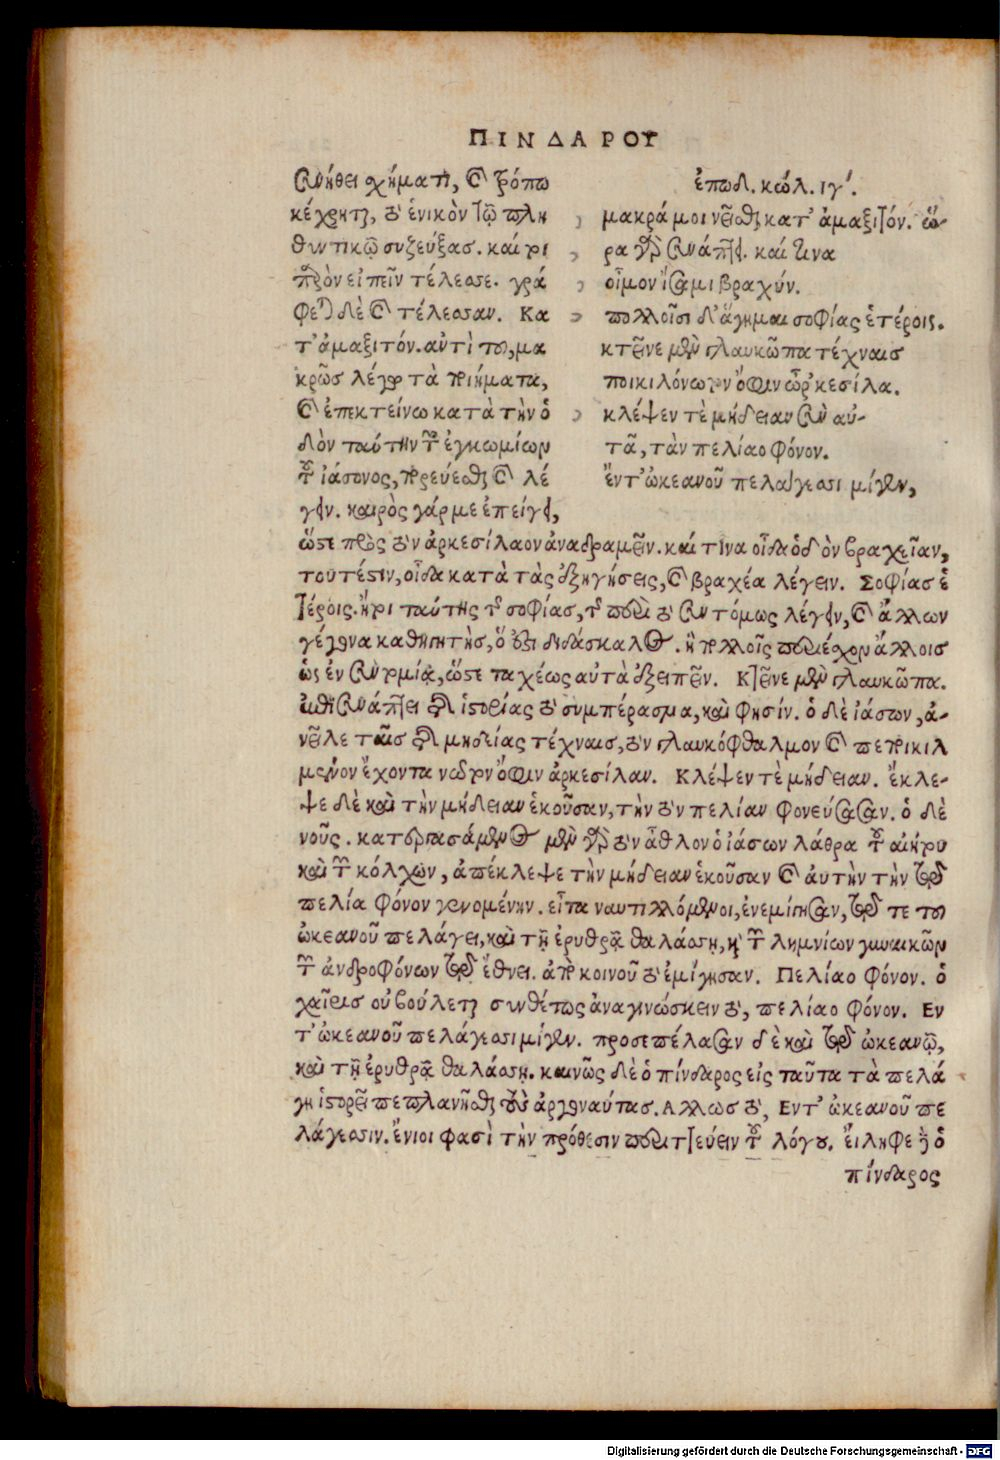 ΠΙΝΔΑΡΟΥ
συνήθει σχήματι, καὶ τρόπῳ
κέχρηται, τὸ ἑνικὸν τῷ πλη
θυντικῷ συζεύξας. καίρι
πρὸν εἰπεῖν τέλεσε. γρά
φεται δὲ καὶ τέλεσαν. Κα
τ' ἀμαξιτόν. ἀντὶ του, μα
κρῶς λέγω τὰ ποιήματα,
καὶ ἐπεκτείνω κατὰ τὴν ὁ
δὸν ταύτην τῶν ἐγκωμίων
τοῦ ἰάσονος, πορεύεσθαι καὶ λέ
γειν. καιρὸς γάρ με ἐπείγει,
ἐπωδ. κώλ. ιγ'.
μακρά μοι νεῖσθαι κατ' ἀμαξιτόν. ὥ-
ρα γὰρ συνάπτει. καί τινα
οἶμον ἴσαμι βραχύν.
πολλοῖσι δ' ἅγημαι σοφίας ἑτέροις.
κτεῖνε μὲν γλαυκῶπα τέχναις
ποικιλόνωτον ὄφιν ὦρκεσίλα.
κλέψεν τὲ μήδειαν σὺν αὐ-
τᾷ, τὰν πελίαο φόνον.
ἔντ' ὠκεανοῦ πελάγεσσι μίγεν,
ὥστε πρὸς τὸν ἀρκεσίλαον ἀναδραμεῖν. καί τινα οἶδα ὁδὸν βραχεῖαν,
τουτέστιν, οἶδα κατὰ τὰς ἐξηγήσεις, καὶ βραχέα λέγειν. Σοφίας ἑ
τέροις. ἤτοι ταύτης τῆς σοφίας, τῆς περὶ τὸ συντόμως λέγειν, καὶ ἄλλων
γέγονα καθηγητὴς, ὅ ἐστι διδάσκαλος. ἢ πολλοῖς περιέχον ἄλλοις
ὡς ἐν συντομίᾳ, ὥστε ταχέως αὐτὰ ἐξειπεῖν. Κτεῖνε μὲν γλαυκῶπα.
συνάπτει τῆς ἱστορίας τὸ συμπέρασμα, καὶ φησίν. ὁ δὲ ἰάσων, ἀ-
νεῖλε ταῖς τῆς μηδείας τέχναις, τὸν γλαυκόφθαλμον καὶ πεποικιλ
μένον ἔχοντα νῶτον ὄφιν ἀρκεσίλαν. Κλέψεν τὲ μήδειαν. ἔκλε-
ψε δὲ καὶ τὴν μήδειαν ἑκοῦσαν, τὴν τὸν πελίαν φονεύσασαν. ὁ δὲ
νοῦς. κατεργασάμενος μὲν γὰρ τὸν ἆθλον ὁ ἰάσων λάθρα τοῦ αἰήτου
καὶ τῶν κόλχων, ἀπέκλεψε τὴν μήδειαν ἑκοῦσαν καὶ αὐτὴν τὴν τοῦ
πελία φόνον γενομένην. εἶτα ναυτιλλόμενοι, ἐνεμίγησαν, τῷ τε του
ὠκεανοῦ πελάγει, καὶ τῇ ἐρυθρᾷ θαλάσσῃ, καὶ τῶν λημνίων γυναικῶν
τῶν ἀνδροφόνων τῷ ἔθνει. ἀπὸ κοινοῦ τὸ ἐμίγησαν. Πελίαο φόνον. ὁ
χαῖρις οὐ βούλεται συνθέτως ἀναγινώσκειν τὸ, πελίαο φόνον. Εν
τ' ὠκεανοῦ πελάγεσσι μίγεν. προσεπέλασαν δὲ καὶ τῷ ὠκεανῷ,
καὶ τῇ ἐρυθρᾷ θαλάσσῃ. καινῶς δὲ ὁ πίνδαρος εἰς ταῦτα τὰ πελά
γη ἱστορεῖ πεπλανῆσθαι τοὺς ἀργοναύτας. Αλλως τὸ, Εντ' ὠκεανοῦ πε
λάγεσσιν. ἔνιοι φασὶ τὴν πρόθεσιν περιττεύειν τοῦ λόγου. εἴληφε δὲ ὁ
πίνδαρος
Digitalisierung gefördert durch die Deutsche Forschungsgemeinschaft - DFG